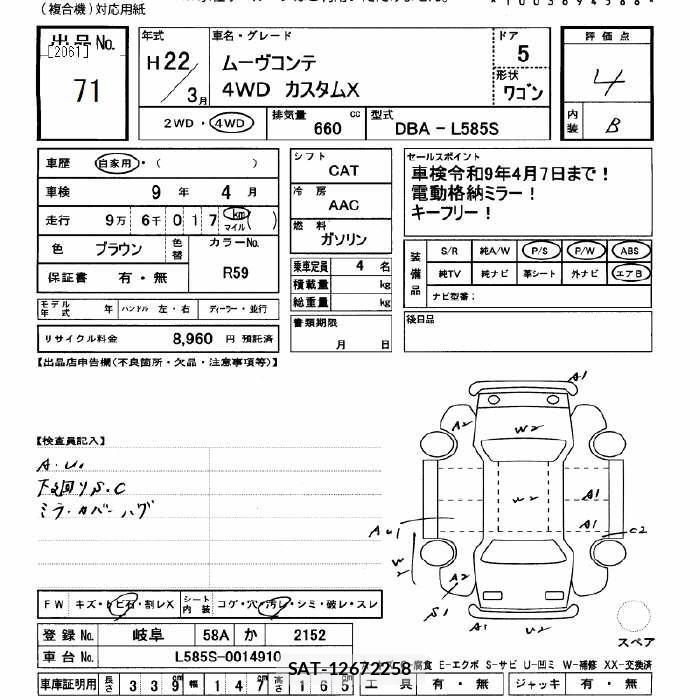 (複合機)対応用紙
出品No.
[2061]
71
年式
H22/3月
車名・グレード
ムーヴコンテ
4WD カスタムX
ドア
5
形状
ワゴン
評価点
4
内装
B
2WD・4WD
排気量 660 cc
型式 DBA - L585S
車歴 自家用・( )
車検 9年 4月
走行 9万 6千 0 1 7 km マイル ( )
色 ブラウン 色替
カラーNo. R59
保証書 有・無
モデル年式 年 ハンドル 左・右 ディーラー・並行
リサイクル料金 8,960 円 預託済
シフト
CAT
冷房
AAC
燃料
ガソリン
乗車定員 4 名
積載量 kg
総重量 kg
書類期限
月 日
セールスポイント
車検令和9年4月7日まで!
電動格納ミラー!
キーフリー!
装備品
S/R 純A/W P/S P/W ABS
純TV 純ナビ 革シート 外ナビ エアB
ナビ型番:
後日品
【出品店申告欄(不良箇所・欠品・注意事項等)】
【検査員記入】
A・U
下廻りS.C
ミラーカバーハゲ
A1
A2
W2
W2
A1
A1
C2
AU1
W2
A2
S1
A1
U2
スペア
FW キズ・トビ石・割レX
シート内装 コゲ・穴・汚レ・シミ・破レ・スレ
登録No. 岐阜 58A か 2152
車台No. L585S-0014910
SAT-12672258
腐食 E-エクボ S-サビ U-凹ミ W-補修 XX-交換済
車庫証明用 長さ 339cm 幅 147cm 高さ 165cm
工具 有・無 ジャッキ 有・無